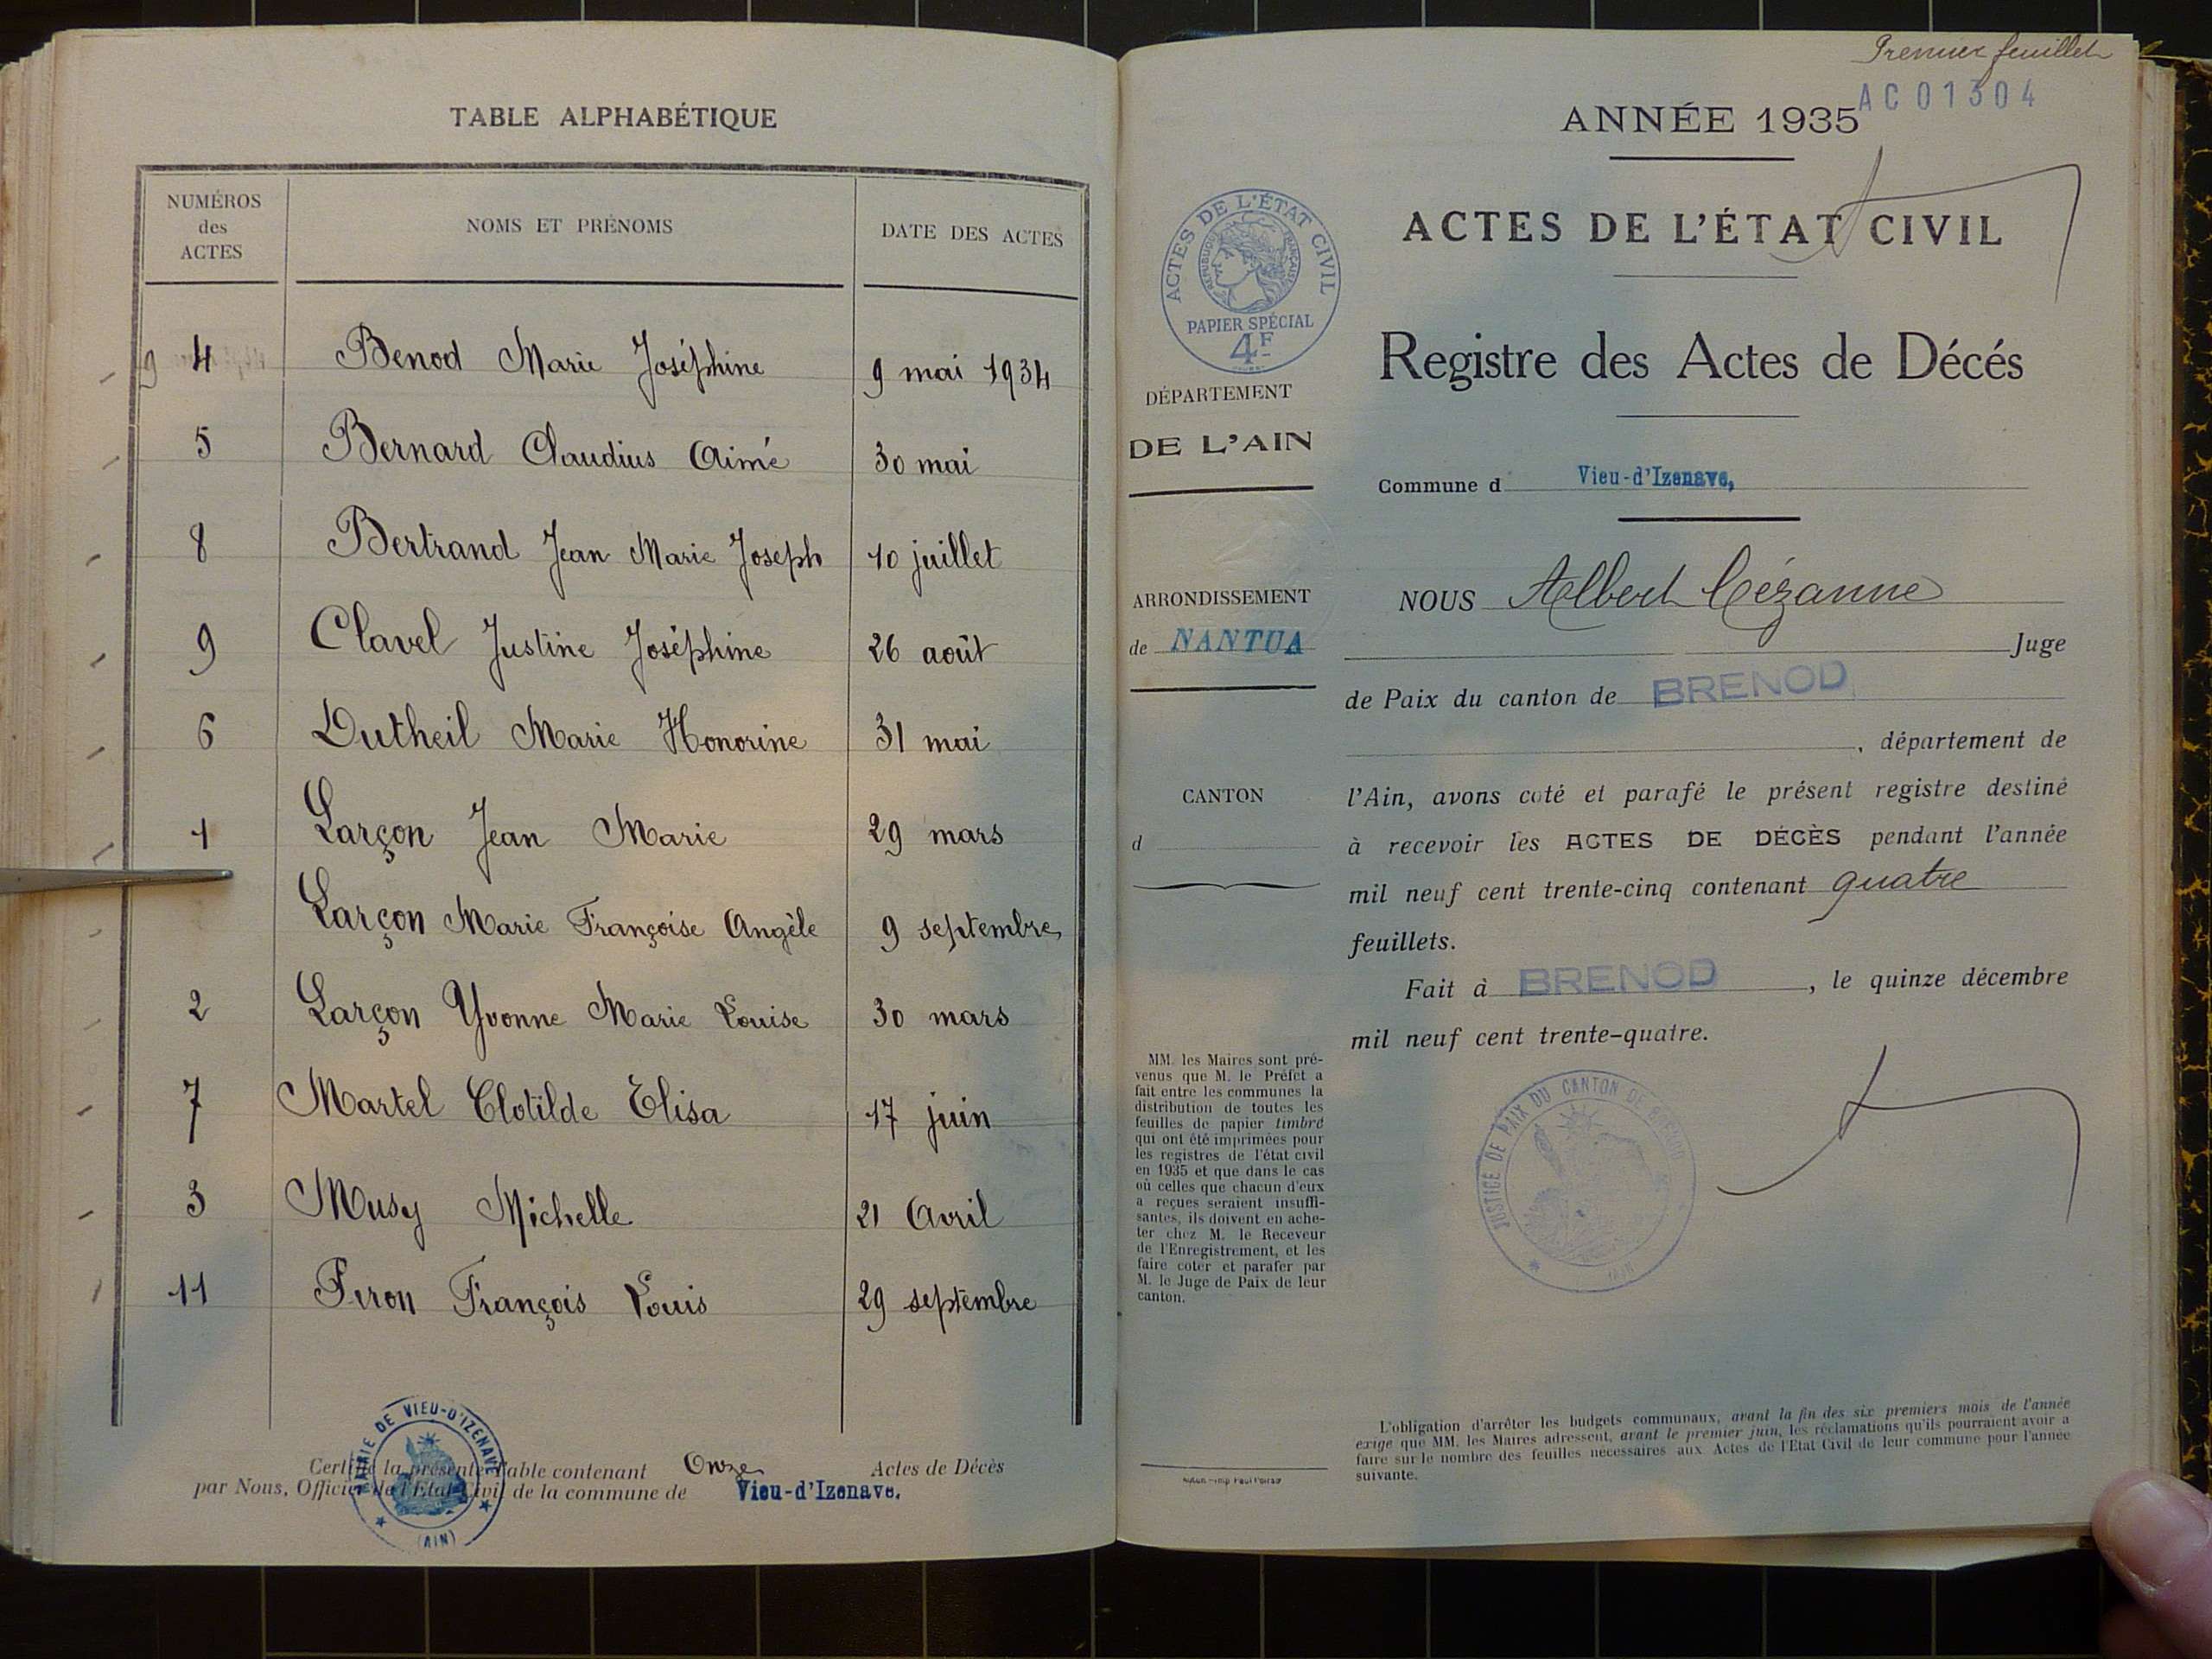 TABLE ALPHABÉTIQUE
NUMÉROS des ACTES
NOMS ET PRÉNOMS
DATE DES ACTES
4 Benod Marie Joséphine 9 mai 1934
5 Bernard Claudius Aimé 30 mai
8 Bertrand Jean Marie Joseph 10 juillet
9 Clavel Justine Joséphine 26 août
6 Dutheil Marie Honorine 31 mai
1 Larçon Jean Marie 29 mars
Larçon Marie Françoise Angèle 9 septembre
2 Larçon Yvonne Marie Louise 30 mars
7 Martel Clotilde Elisa 17 juin
3 Musy Michelle 21 Avril
11 Piron François Louis 29 septembre
MAIRIE DE VIEU-D'IZENAVE
(AIN)
Certifié la présente Table contenant Onze Actes de Décès
par Nous, Officier de l'Etat Civil de la commune de Vieu-d'Izenave.
Premier feuillet
AC01304
ANNÉE 1935
ACTES DE L'ÉTAT CIVIL
Registre des Actes de Décés
ACTES DE L'ÉTAT CIVIL
RÉPUBLIQUE FRANÇAISE
PAPIER SPÉCIAL
4F
DÉPARTEMENT
DE L'AIN
Commune d Vieu-d'Izenave,
ARRONDISSEMENT
de NANTUA
CANTON
d
NOUS Albert Cézanne
Juge
de Paix du canton de BRENOD
, département de
l'Ain, avons coté et parafé le présent registre destiné
à recevoir les ACTES DE DÉCÈS pendant l'année
mil neuf cent trente-cinq contenant quatre
feuillets.
Fait à BRENOD, le quinze décembre
mil neuf cent trente-quatre.
JUSTICE DE PAIX DU CANTON DE BRENOD
MM. les Maires sont pré-
venus que M. le Préfet a
fait entre les communes la
distribution de toutes les
feuilles de papier timbré
qui ont été imprimées pour
les registres de l'état civil
en 1935 et que dans le cas
où celles que chacun d'eux
a reçues seraient insuffi-
santes, ils doivent en ache-
ter chez M. le Receveur
de l'Enregistrement, et les
faire coter et parafer par
M. le Juge de Paix de leur
canton.
L'obligation d'arrêter les budgets communaux, avant la fin des six premiers mois de l'année
exige que MM. les Maires adressent, avant le premier juin, les réclamations qu'ils pourraient avoir a
faire sur le nombre des feuilles nécessaires aux Actes de l'Etat Civil de leur commune pour l'année
suivante.